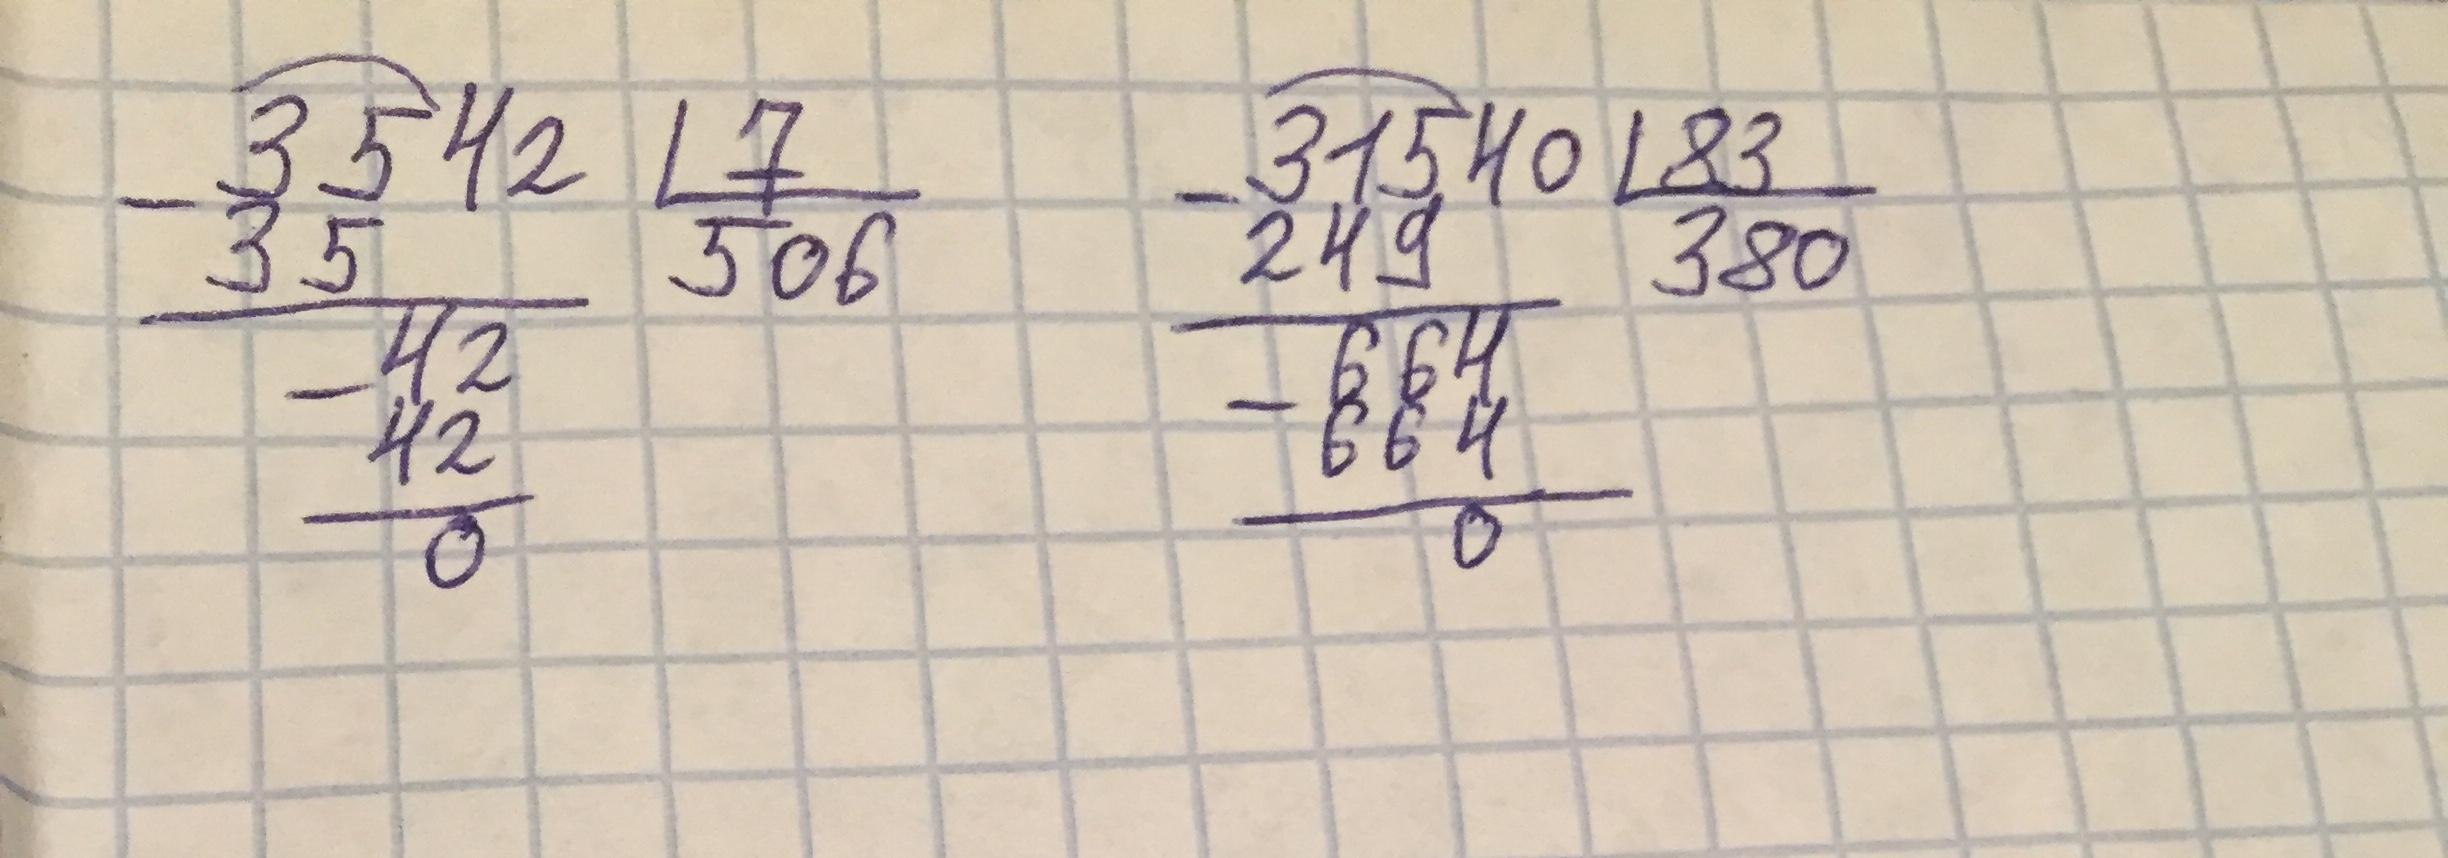 3542 7
- 35 506
- 42
42
0
31540 83
- 249 380
- 664
664
0